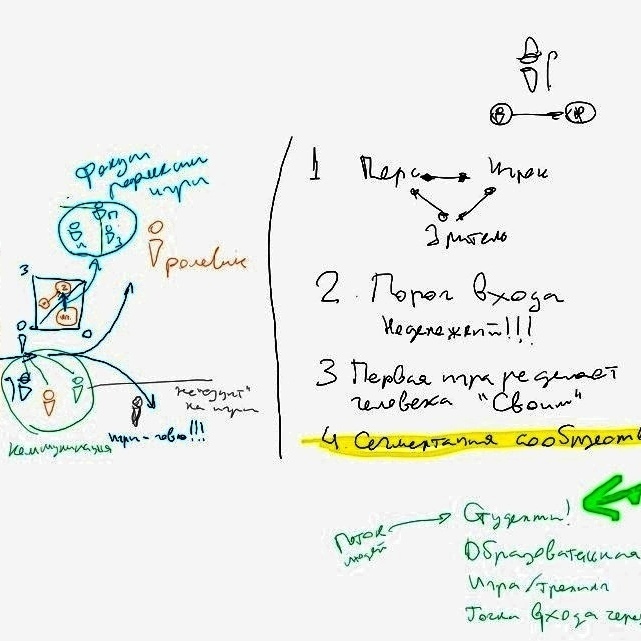 Фокус
рефлексии
игры
П
И З
ролевик
З
коммуникация
"не ходит"
на игры
игры - говно!!!
1 Перс Игрок
Зритель
2. Порог входа
Неденежный!!!
3 Первая игра не делает
человека "Своим"
4. Сегментация сообществ
Поток
людей
Студенты!
Образовательная
Игра/тренинг
Точка входа через